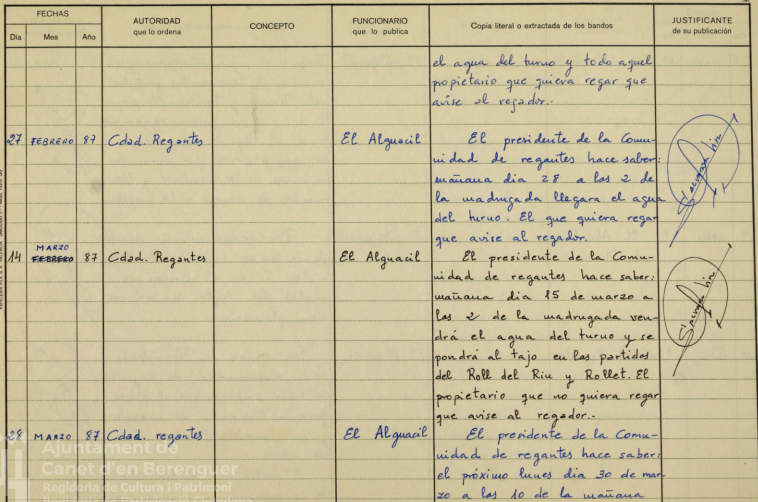 FECHAS
Día Mes Año
AUTORIDAD
que lo ordena
CONCEPTO
FUNCIONARIO
que lo publica
Copia literal o extractada de los bandos
JUSTIFICANTE
de su publicación
el agua del turno y todo aquel
propietario que quiera regar que
avise al regador.-
27 FEBRERO 87 Cdad. Regantes El Alguacil El presidente de la Comu-
nidad de regantes hace saber:
mañana dia 28 a las 2 de
la madrugada llegara el agua
del turno. El que quiera regar
que avise al regador.
14 MARZO FEBRERO 87 Cdad. Regantes El Alguacil El presidente de la Comu-
nidad de regantes hace saber:
mañana dia 15 de marzo a
las 2 de la madrugada ven-
drá el agua del turno y se
pondrá al tajo en las partidas
del Roll del Riu y Rollet. El
propietario que no quiera regar
que avise al regador.-
28 MARZO 87 Cdad. regantes El Alguacil El presidente de la Comu-
nidad de regantes hace saber:
el próximo lunes dia 30 de mar-
zo a las 10 de la mañana
Ajuntament de
Canet d'en Berenguer
Regidoria de Cultura i Patrimoni